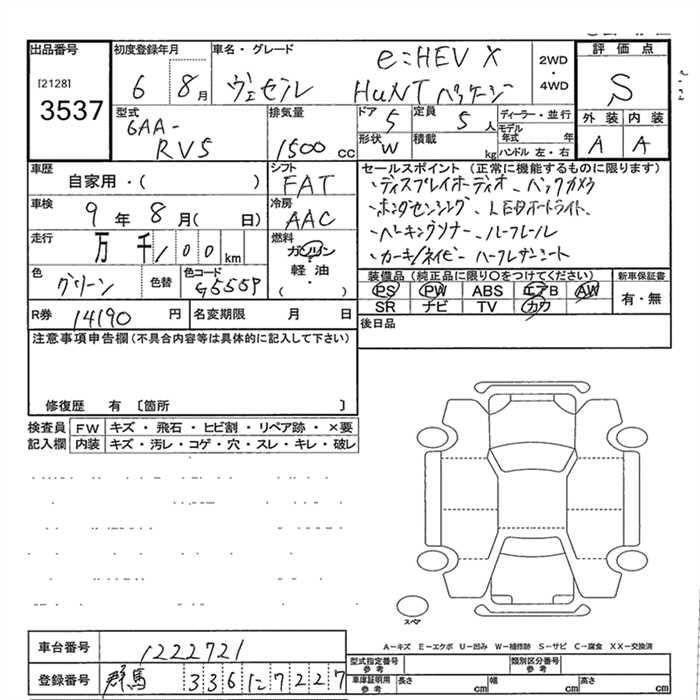 出品番号
[2128]
3537
初度登録年月
6 8月
車名・グレード
e:HEV X
ヴェゼル HuNT パッケージ
2WD
・
4WD
評価点
S
外装 内装
A A
型式
6AA-
RV5
排気量
1500 cc
ドア
5
定員
5人
形状
W
積載
kg
ディーラー・並行
モデル
年式 年
ハンドル 左・右
車歴
自家用・( )
シフト
FAT
車検
9年 8月( 日)
冷房
AAC
走行
万 千 100 km
燃料
ガソリン
軽油
・
( )
色
グリーン
色替
色コード
G555P
セールスポイント (正常に機能するものに限ります)
・ディスプレイオーディオ、バックカメラ
・ホンダセンシング、LEDオートライト、
・パーキングソナー、ルーフレール
・カーキ/ネイビー ハーフレザーシート
装備品(純正品に限り○をつけてください)
PS PW ABS エアB AW
SR ナビ TV カワ
新車保証書
有・無
R券 14190 円
名変期限 月 日
後日品
注意事項申告欄(不具合内容等は具体的に記入して下さい)
修復歴 有 〔箇所 〕
検査員
記入欄
FW キズ・飛石・ヒビ割・リペア跡・×要
内装 キズ・汚レ・コゲ・穴・スレ・キレ・破レ
スペア
A-キズ E-エクボ U-凹み W-補修跡 S-サビ C-腐食 XX-交換済
車台番号 1222721
登録番号 群馬 336 に 7227
型式指定番号
参考
類別区分番号
参考
車庫証明用
参考
長さ cm
幅 cm
高さ cm